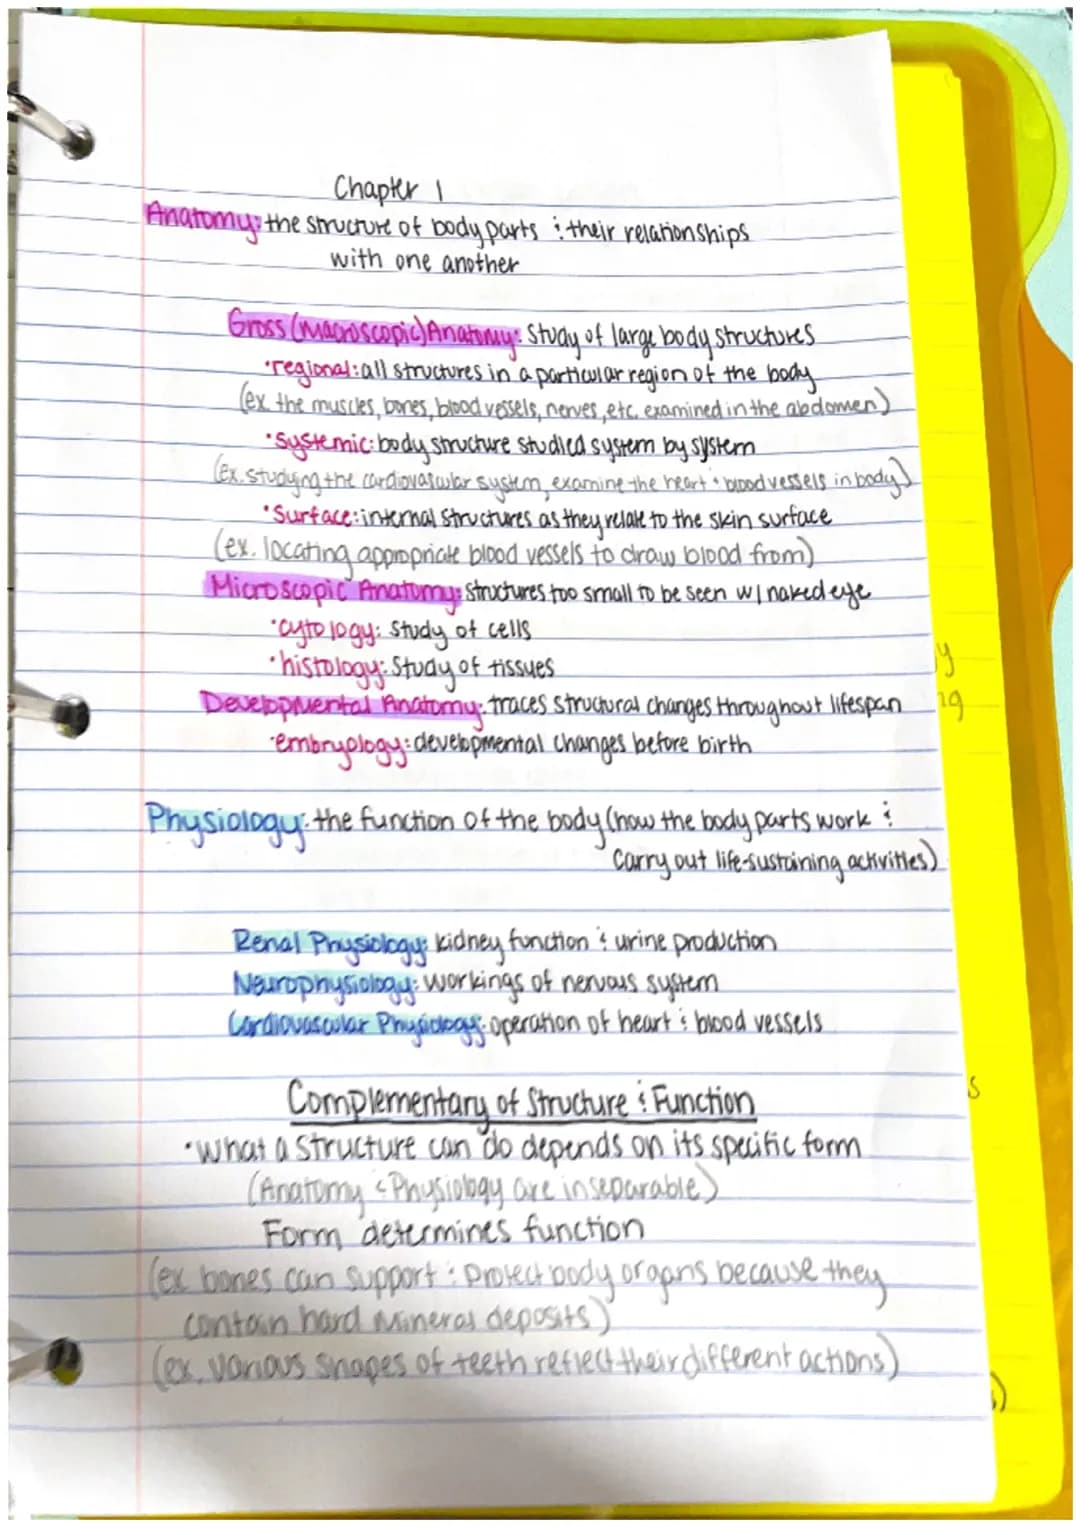 Chapter 1
Anatomy: the structure of body parts & their relationships
with one another
Gross (Macroscopic) Anatomy: Study of large body structures
•regional: all structures in a particular region of the body
(ex. the muscles, bones, blood vessels, nerves, etc. examined in the abdomen)
•Systemic: body structure studied system by system
(ex. studying the cardiovascular system, examine the heart & blood vessels in body)
•Surface: internal structures as they relate to the skin surface
(ex. locating appropriate blood vessels to draw blood from)
Microscopic Anatomy: structures too small to be seen w/ naked eye
•cytology: Study of cells
•histology: Study of tissues
Developmental Anatomy: traces structural changes throughout lifespan
•embryology: developmental changes before birth
Physiology: the function of the body (how the body parts work &
carry out life-sustaining activities)
Renal Physiology: kidney function & urine production
Neurophysiology: workings of nervous system
Cardiovascular Physiology: operation of heart & blood vessels
Complementary of Structure & Function
•What a structure can do depends on its specific form
(Anatomy & Physiology are inseparable)
Form determines function
(ex. bones can support & protect body organs because they
contain hard mineral deposits)
(ex. various shapes of teeth reflect their different actions)